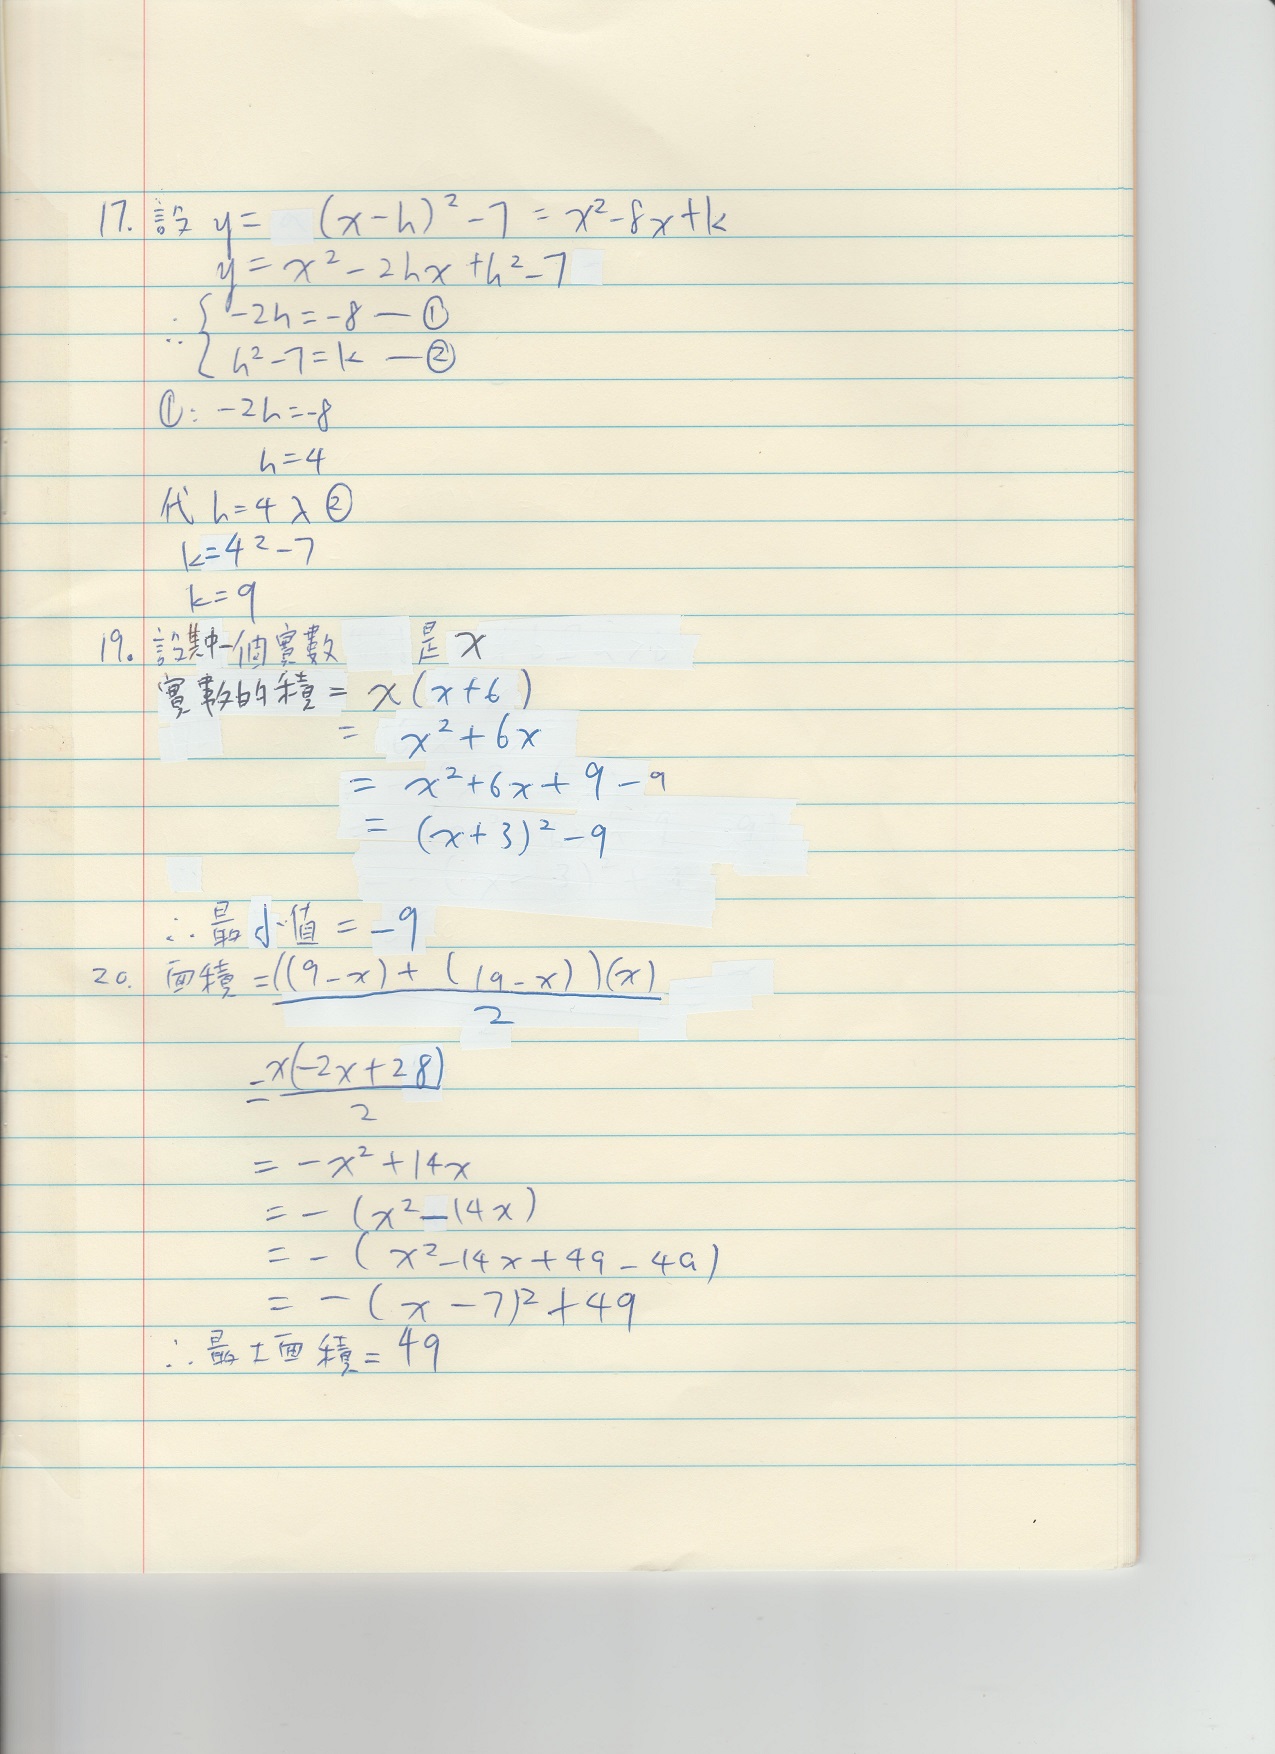 17. 設 y = (x-h)² - 7 = x² - 8x + k
y = x² - 2hx + h² - 7
∴ { -2h = -8 — ①
{ h² - 7 = k — ②
①: -2h = -8
h = 4
代 h = 4 入 ②
k = 4² - 7
k = 9
19. 設其中一個實數 是 x
實數的積 = x(x+6)
= x² + 6x
= x² + 6x + 9 - 9
= (x+3)² - 9
∴ 最小值 = -9
20. 面積 = ((9-x) + (19-x))(x)
2
= x(-2x+28)
2
= -x² + 14x
= -(x² - 14x)
= -(x² - 14x + 49 - 49)
= -(x-7)² + 49
∴ 最大面積 = 49